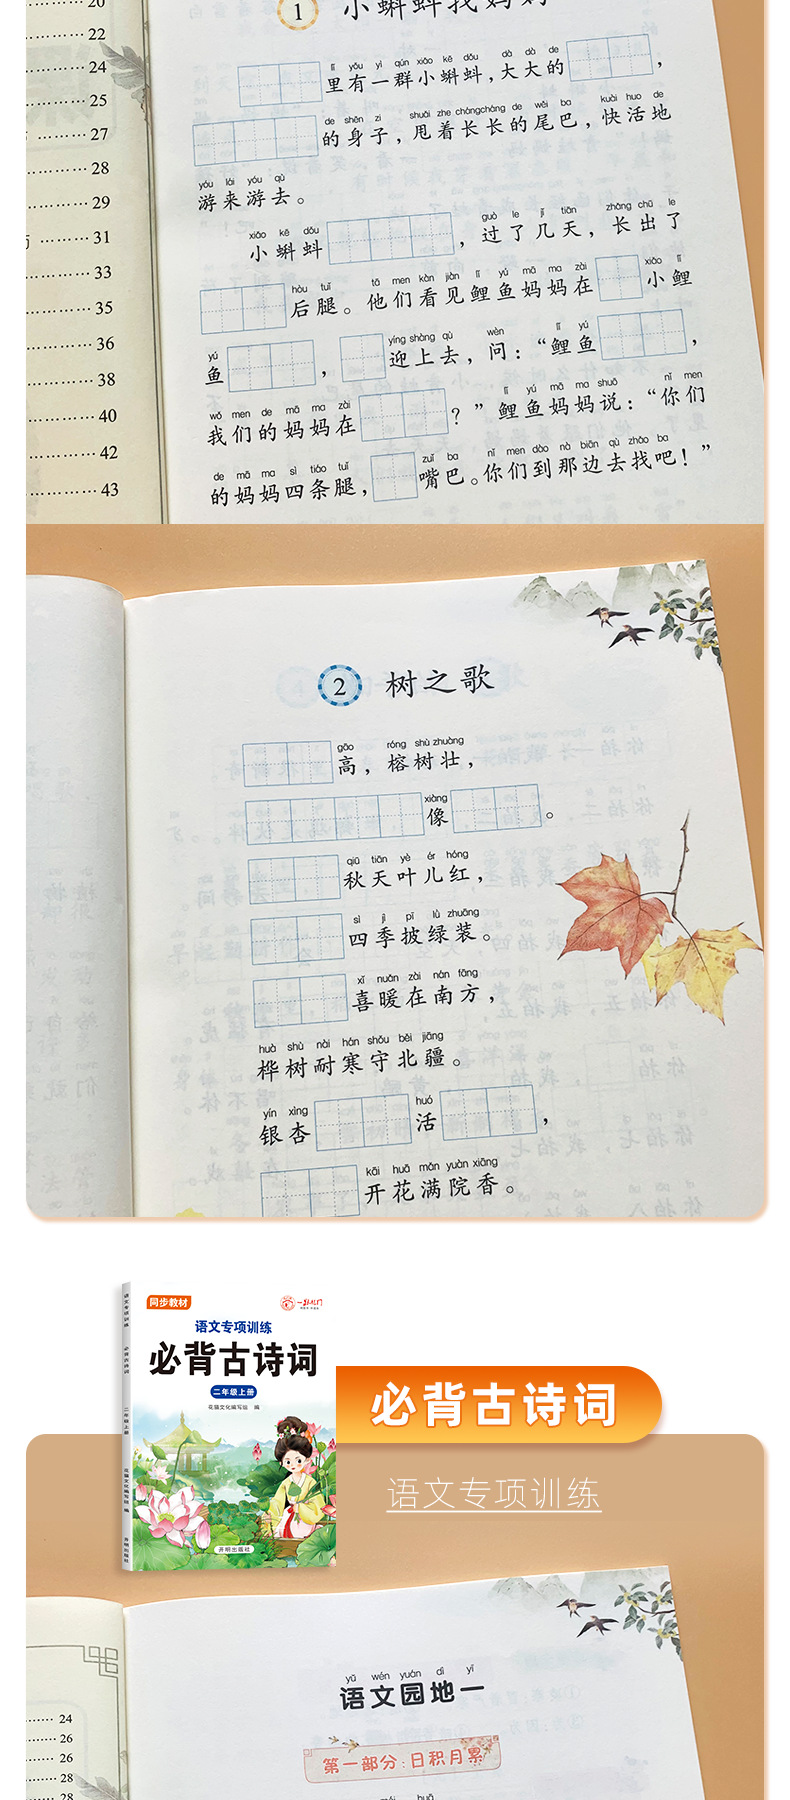 20
22
24
25
27
28
29
31
33
35
36
38
40
42
43
1 小蝌蚪找妈妈
lǐ yǒu yì qún xiǎo kē dǒu dà dà de
里有一群小蝌蚪,大大的 ,
de shēn zi shuǎi zhe chángcháng de wěi ba kuài huo de
的身子,甩着长长的尾巴,快活地
yóu lái yóu qù
游来游去。
xiǎo kē dǒu guò le jǐ tiān zhǎng chū le
小蝌蚪 ,过了几天,长出了
hòu tuǐ tā men kàn jiàn lǐ yú mā ma zài xiǎo lǐ
后腿。他们看见鲤鱼妈妈在 小鲤
yú yíng shàng qù wèn lǐ yú
鱼 , 迎上去,问:“鲤鱼 ,
wǒ men de mā ma zài lǐ yú mā ma shuō nǐ men
我们的妈妈在 ?”鲤鱼妈妈说:“你们
de mā ma sì tiáo tuǐ zuǐ ba nǐ men dào nà biān qù zhǎo ba
的妈妈四条腿, 嘴巴。你们到那边去找吧!”
2 树之歌
gāo róng shù zhuàng
高,榕树壮,
xiàng
像 。
qiū tiān yè ér hóng
秋天叶儿红,
sì jì pī lǜ zhuāng
四季披绿装。
xǐ nuǎn zài nán fāng
喜暖在南方,
huà shù nài hán shǒu běi jiāng
桦树耐寒守北疆。
yín xìng huó
银杏 活 ,
kāi huā mǎn yuàn xiāng
开花满院香。
语文专项训练
必背古诗词
二年级上册
花猫文化编写组 编
开明出版社
同步教材
语文专项训练
必背古诗词
二年级上册
花猫文化编写组 编
开明出版社
必背古诗词
语文专项训练
24
26
26
28
28
yǔ wén yuán dì yī
语文园地一
第一部分:日积月累